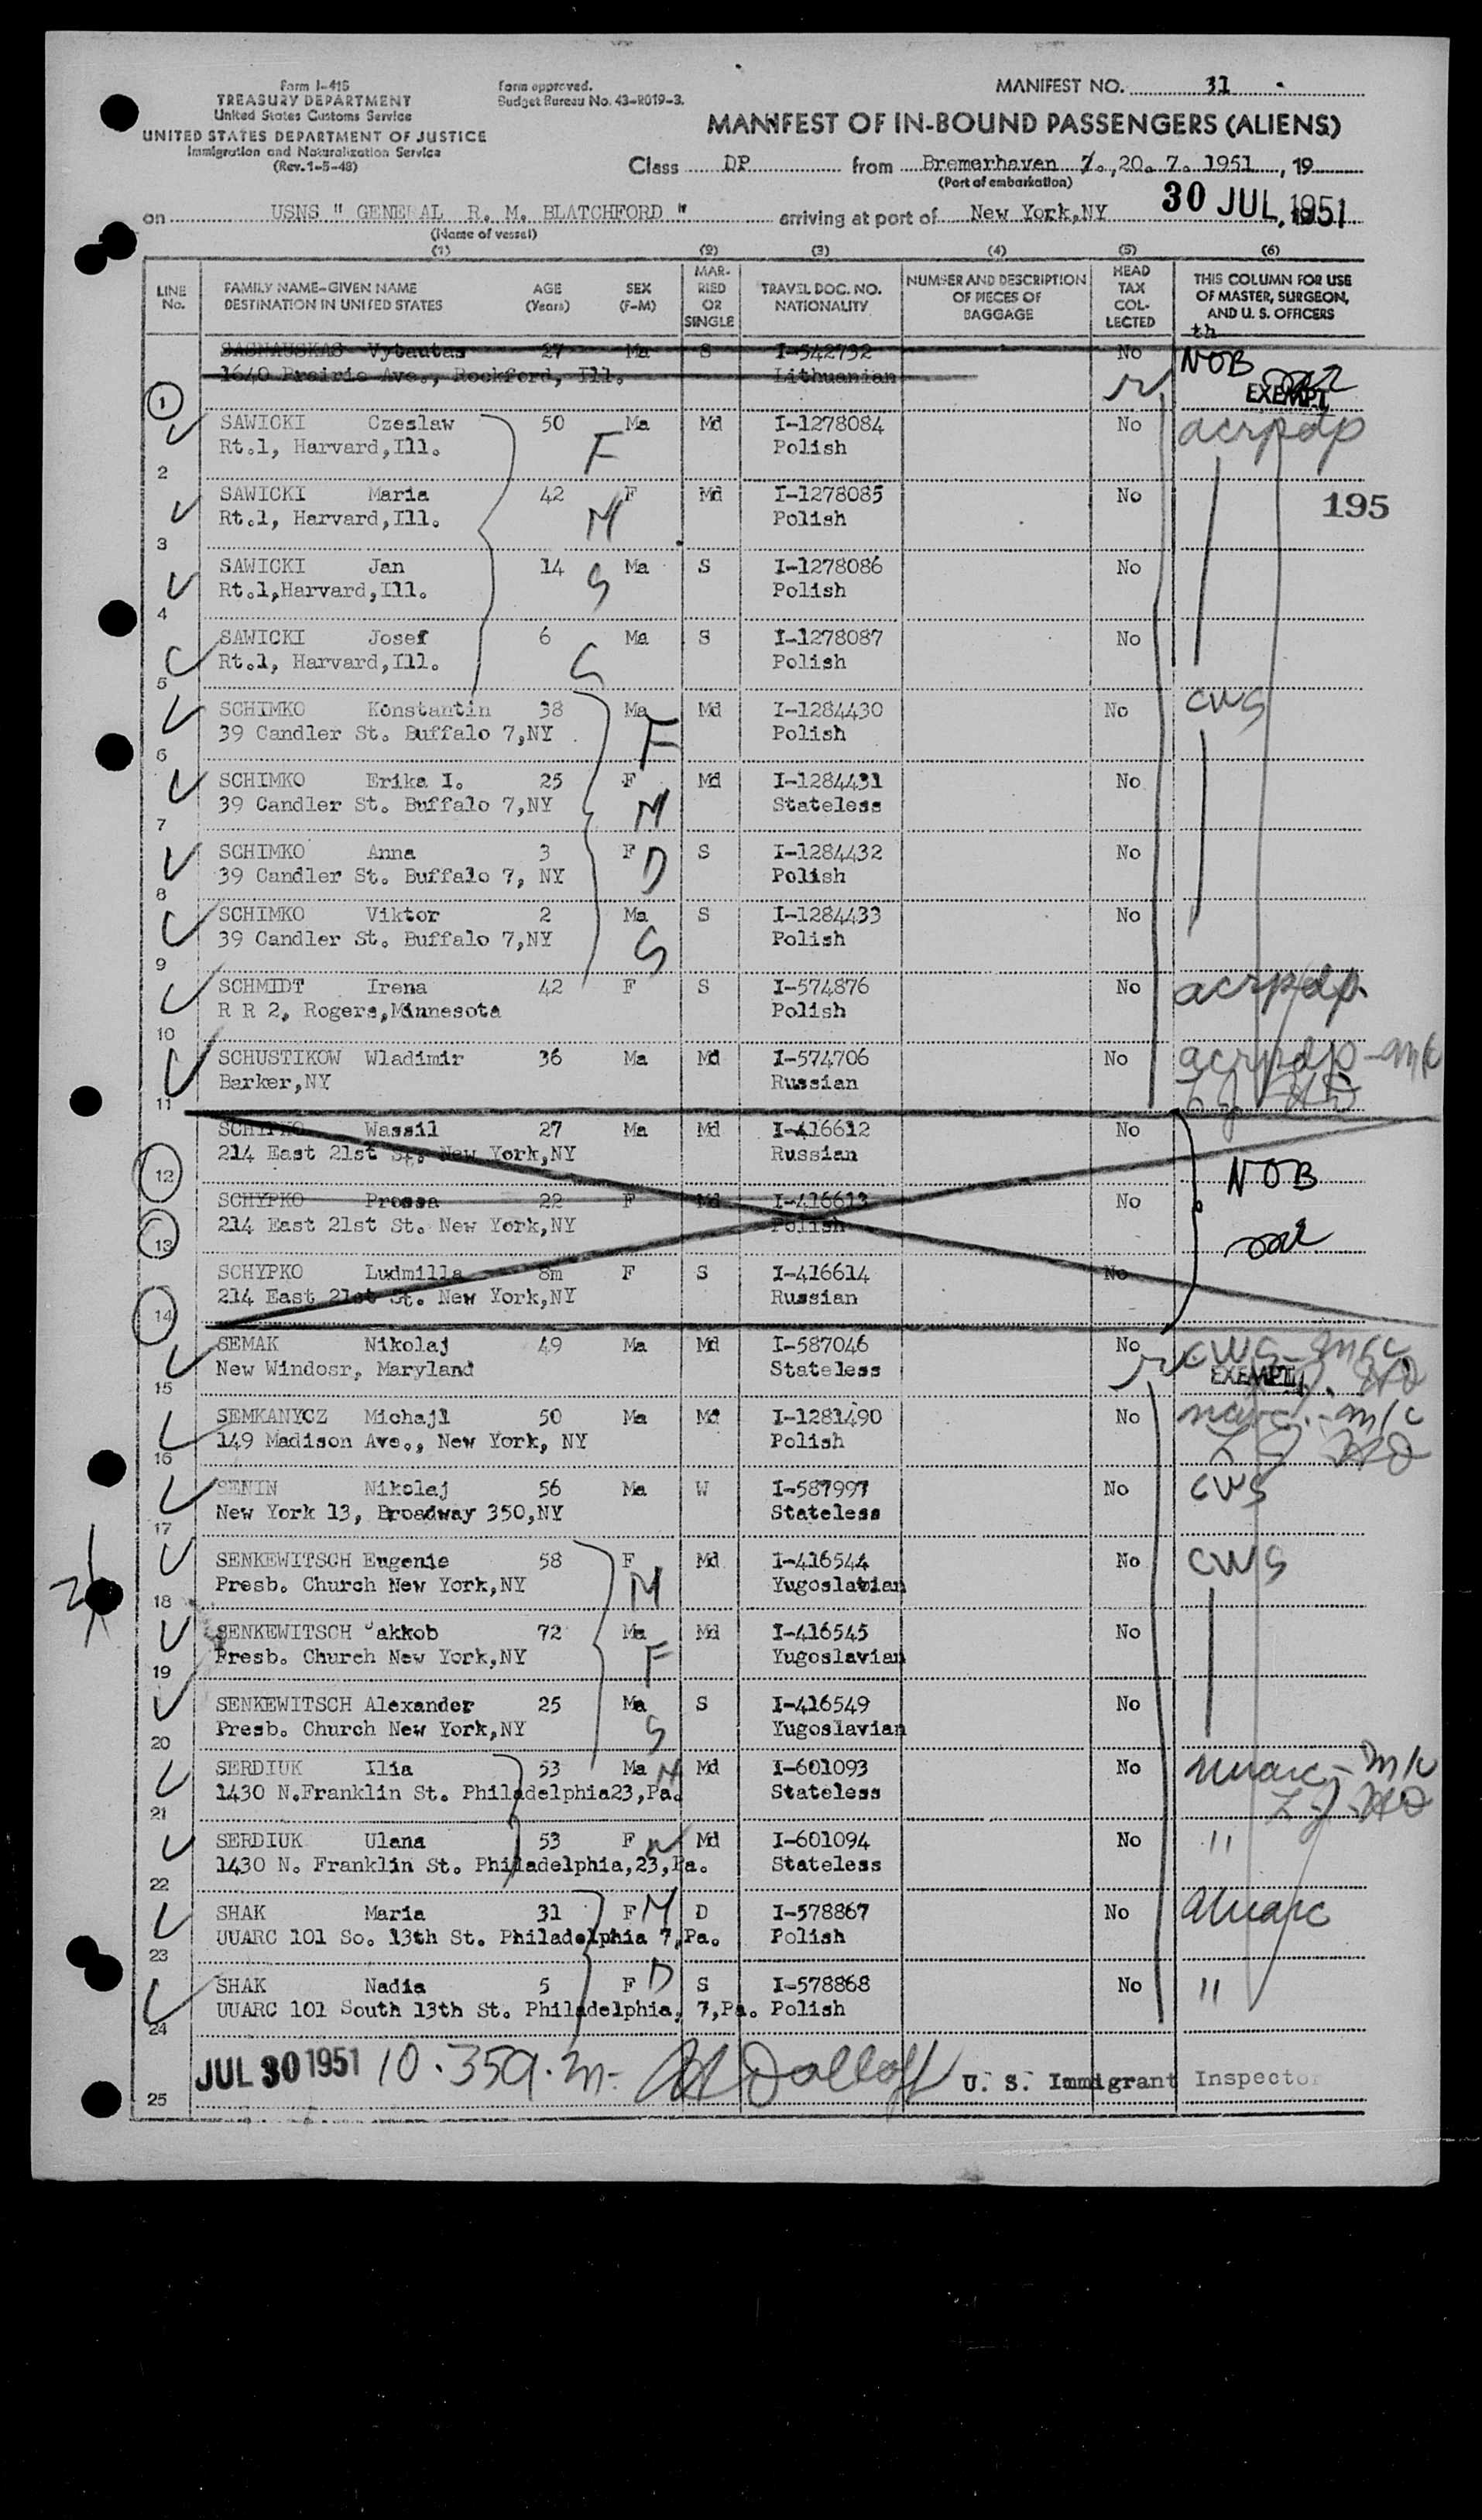 Form I-415
TREASURY DEPARTMENT
United States Customs Service
UNITED STATES DEPARTMENT OF JUSTICE
Immigration and Naturalization Service
(Rev. 1-5-48)
Form approved.
Budget Bureau No. 43-R019-3.
MANIFEST NO. 31
MANIFEST OF IN-BOUND PASSENGERS (ALIENS)
Class DP from Bremerhaven 7., 20. 7. 1951, 19
(Port of embarkation)
on USNS " GENERAL R. M. BLATCHFORD " arriving at port of New York,NY 30 JUL 1951
(Name of vessel)
(1) (2) (3) (4) (5) (6)
LINE No. FAMILY NAME-GIVEN NAME DESTINATION IN UNITED STATES AGE (Years) SEX (F-M) MARRIED OR SINGLE TRAVEL DOC. NO. NATIONALITY NUMBER AND DESCRIPTION OF PIECES OF BAGGAGE HEAD TAX COLLECTED THIS COLUMN FOR USE OF MASTER, SURGEON, AND U. S. OFFICERS
th
SASNAUSKAS Vytautas 27 Ma S I-542732 No NOB
1640 Prairie Ave., Rockford, Ill. Lithuanian
1 EXEMPT
SAWICKI Czeslaw 50 Ma Md I-1278084 No acrpdp
Rt.1, Harvard,Ill. F Polish
2
SAWICKI Maria 42 F Md I-1278085 No 195
Rt.1, Harvard,Ill. M Polish
3
SAWICKI Jan 14 Ma S I-1278086 No
Rt.1,Harvard,Ill. S Polish
4
SAWICKI Josef 6 Ma S I-1278087 No
Rt.1, Harvard,Ill. S Polish
5
SCHIMKO Konstantin 38 Ma Md I-1284430 No CWS
39 Candler St. Buffalo 7,NY F Polish
6
SCHIMKO Erika I. 25 F Md I-1284431 No
39 Candler St. Buffalo 7,NY M Stateless
7
SCHIMKO Anna 3 F S I-1284432 No
39 Candler St. Buffalo 7, NY D Polish
8
SCHIMKO Viktor 2 Ma S I-1284433 No
39 Candler St. Buffalo 7,NY S Polish
9
SCHMIDT Irena 42 F S I-574876 No acrpdp
R R 2, Rogers,Minnesota Polish
10
SCHUSTIKOW Wladimir 36 Ma Md I-574706 No acrpdp-m/c
Barker,NY Russian
11
SCHYPKO Wassil 27 Ma Md I-416612 No
214 East 21st St. New York,NY Russian
12 NOB
SCHYPKO Prossa 22 F Md I-416613 No
214 East 21st St. New York,NY Polish
13
SCHYPKO Ludmilla 8m F S I-416614 No
214 East 21st St. New York,NY Russian
14
SEMAK Nikolaj 49 Ma Md I-587046 No CWS-m/c
New Windosr, Maryland Stateless EXEMPT
15
SEMKANYCZ Michajl 50 Ma Md I-1281490 No m/c
149 Madison Ave., New York, NY Polish
16
SENIN Nikolaj 56 Ma W I-587997 No CWS
New York 13, Broadway 350,NY Stateless
17
SENKEWITSCH Eugenie 58 F Md I-416544 No CWS
Presb. Church New York,NY M Yugoslavian
18
SENKEWITSCH Jakkob 72 Ma Md I-416545 No
Presb. Church New York,NY F Yugoslavian
19
SENKEWITSCH Alexander 25 Ma S I-416549 No
Presb. Church New York,NY S Yugoslavian
20
SERDIUK Ilia 53 Ma H Md I-601093 No uuarc-m/c
1430 N.Franklin St. Philadelphia23,Pa. Stateless
21
SERDIUK Ulana 53 F W Md I-601094 No "
1430 N. Franklin St. Philadelphia,23,Pa. Stateless
22
SHAK Maria 31 F M D I-578867 No uuarc
UUARC 101 So. 13th St. Philadelphia 7,Pa. Polish
23
SHAK Nadia 5 F D S I-578868 No "
UUARC 101 South 13th St. Philadelphia, 7,Pa. Polish
24
JUL 30 1951 10.35 a.m. U. S. Immigrant Inspector
25